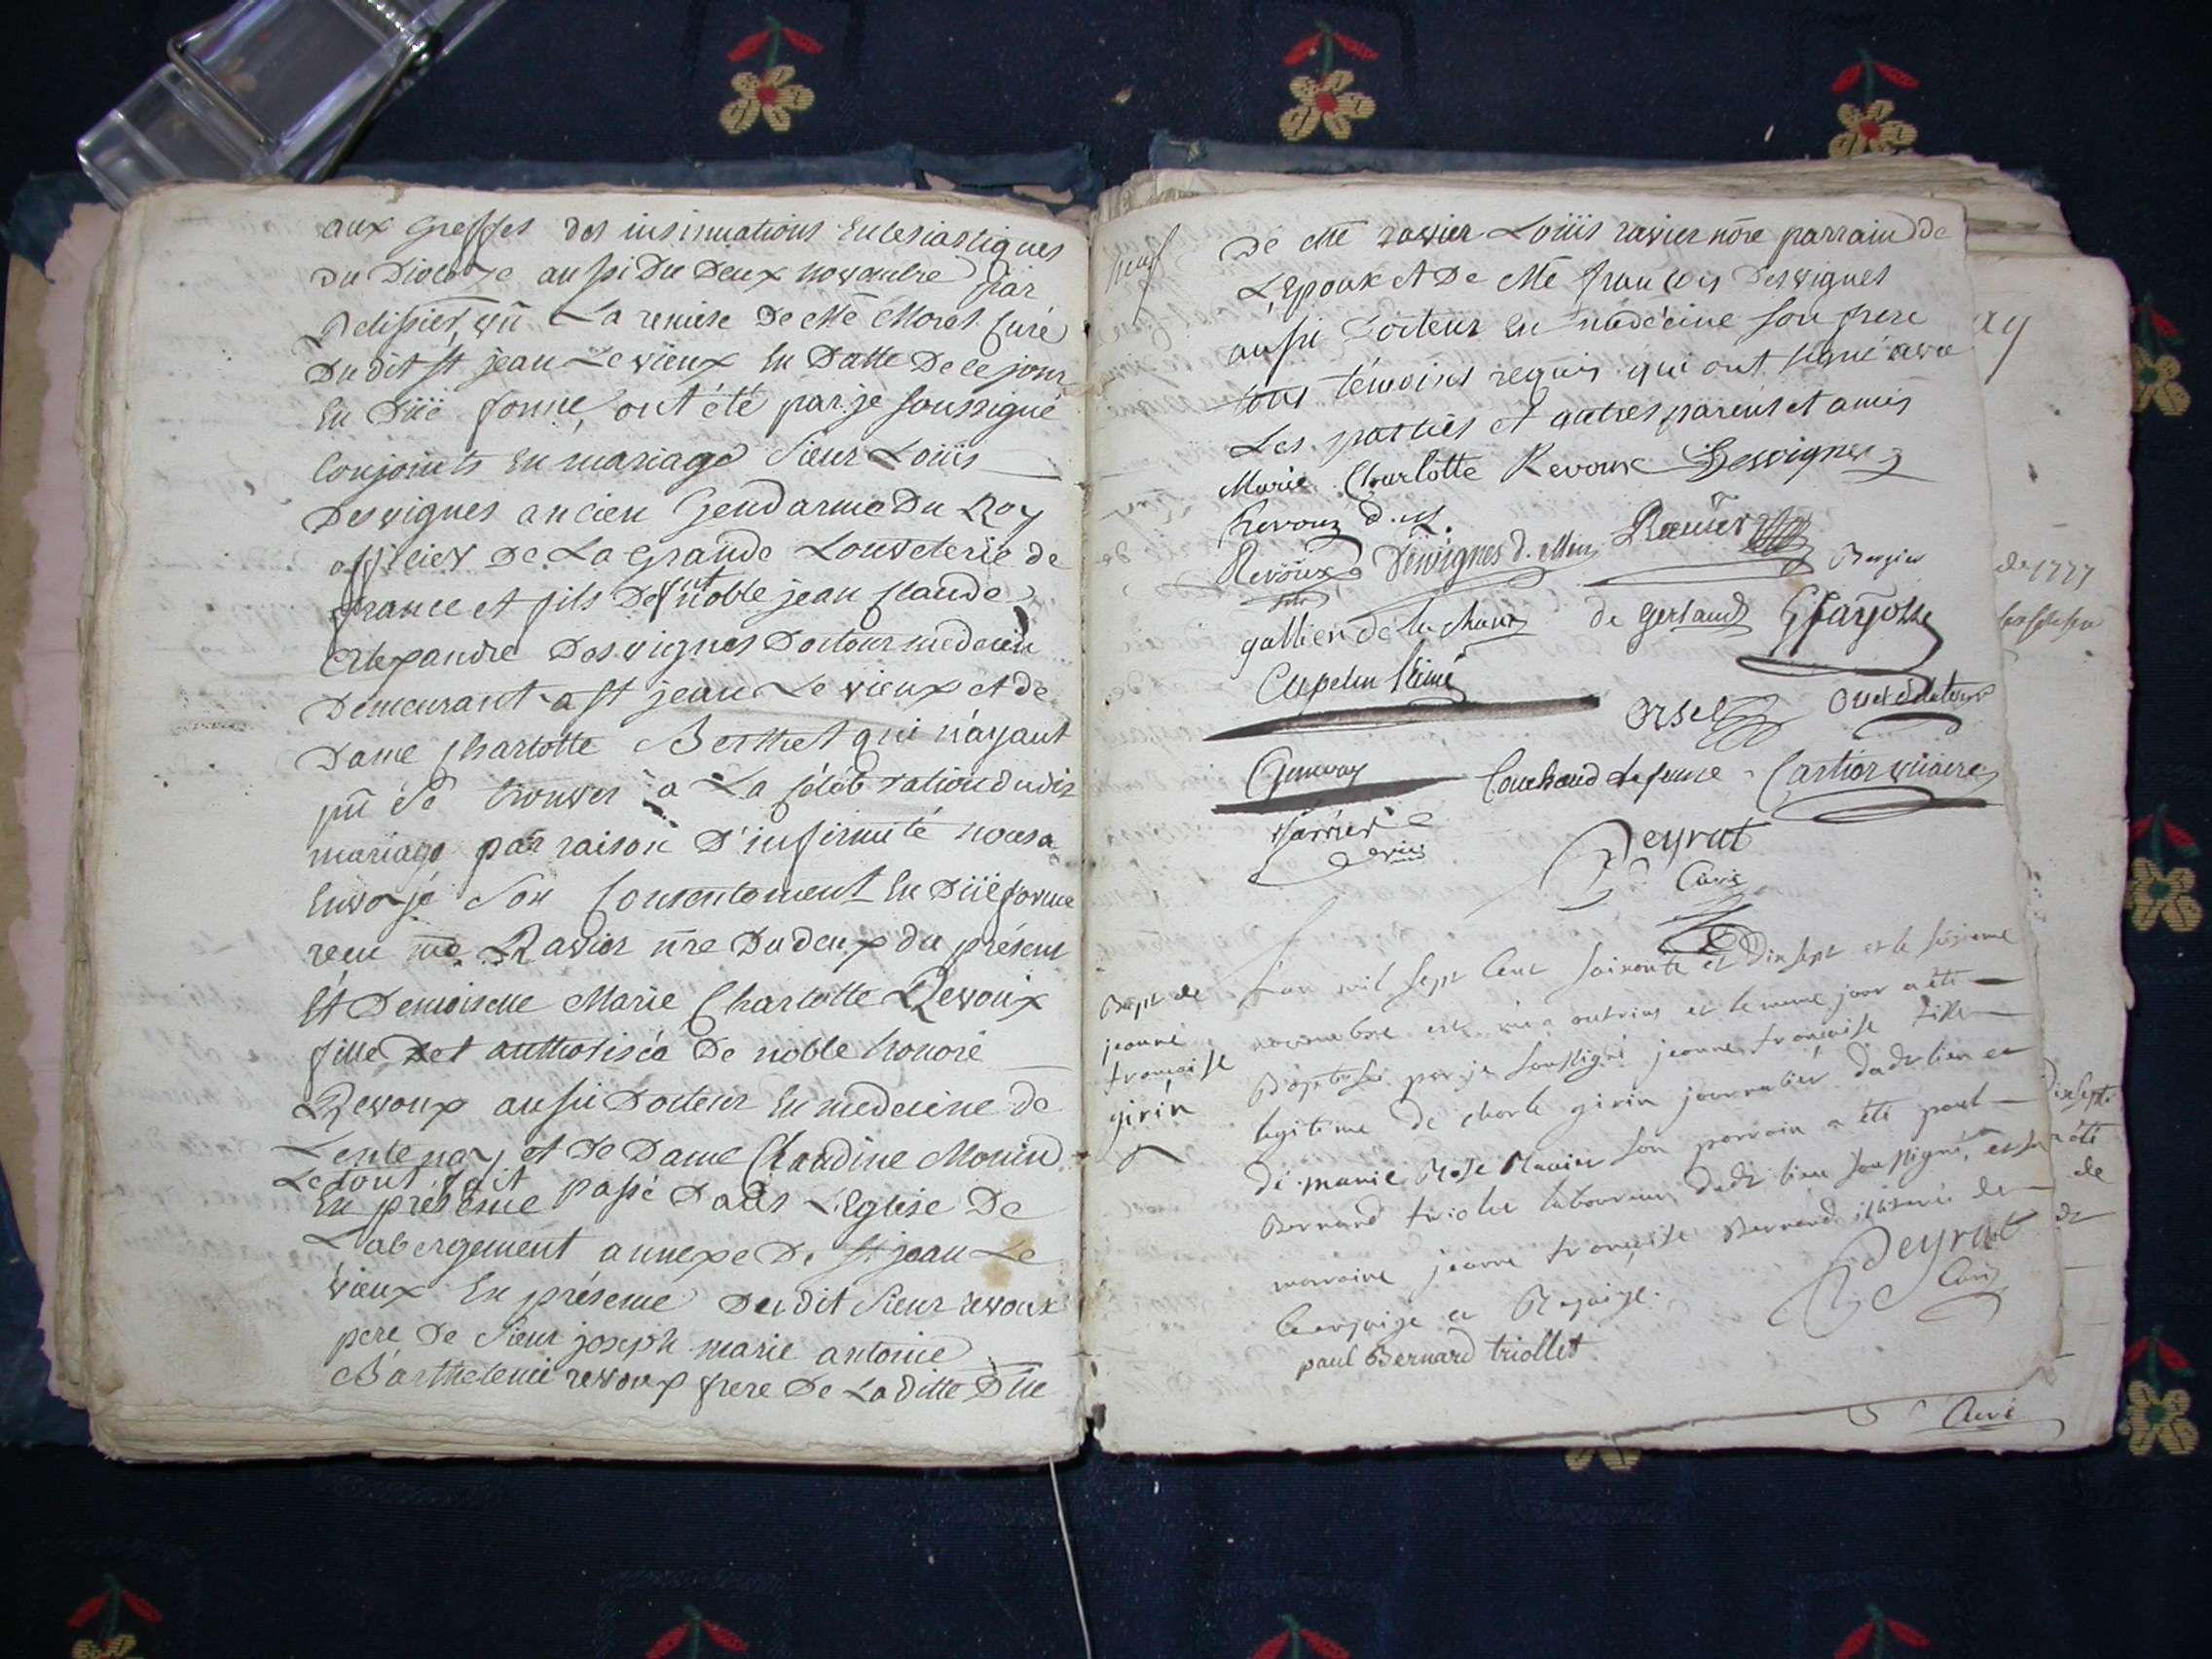 aux greffes des insinuations Eclesiastiques
du Diocèse aussi Du Deux novembre par
Pelissier, vû La remise De Me Morel Curé
Du dit st jean Le vieux En Datte De ce jour
En Düe forme, ont été par je soussigné
Conjoints en mariage Sieur Loüis
Desvignes ancien Gendarme Du Roy
officier De La Grande Louveterie de
france et fils De fut noble jean Claude
Alexandre Desvignes Docteur medecin
Demeurant a st jean Le vieux et de
Dame Charlotte Berthet qui n'ayant
pû se trouver a La célébration dudit
mariage par raison d'infirmité nous a
Envoyé Son Consentement En Düe forme
recu me Ravier nre Du deux du présent
Et Demoiselle Marie Charlotte Revoux
fille et authorisée De noble honoré
Revoux aussi Docteur En medecine de
Lentenay et de Dame Claudine Monin
Le tout fait
En présence passé Dans L'Eglise De
Labergement annexe De st jean Le
vieux En présence Dudit Sieur revoux
pere De Sieur joseph marie antoine
Barthelemi revoux frere De La ditte Dlle
De Me ravier Loüis ravier nore parrain de
L'Epoux et De Me françois Desvignes
aussi Docteur En médécine son frere
tous témoins requis qui ont signé avec
Les parties et autres parents et amis
Marie Charlotte Revoux Desvignes
Revoux d. m.
Revoux Desvignes d. Men Ravier
Bergier
gallien de la chaux de gerland
Orsel
Couchoud Cartier vicaire
Peyrat
Curé
Bapt de
jeanne
françoise
girin
L'an mil sept cent soixante et Dix sept et le sixieme
novembre est née outriaz et le meme jour a été
Baptisée par je soussigné jeanne françoise fille
legitime de charle girin journalier dudt lieu et
de marie Rose Ravier son parrain a été paul
Bernard triolet laboureur dudt lieu soussigné, et sa
marraine jeanne françoise Bernard illiterée de
Peyrat
Curé
paul Bernard triollet
de 1777
Curé